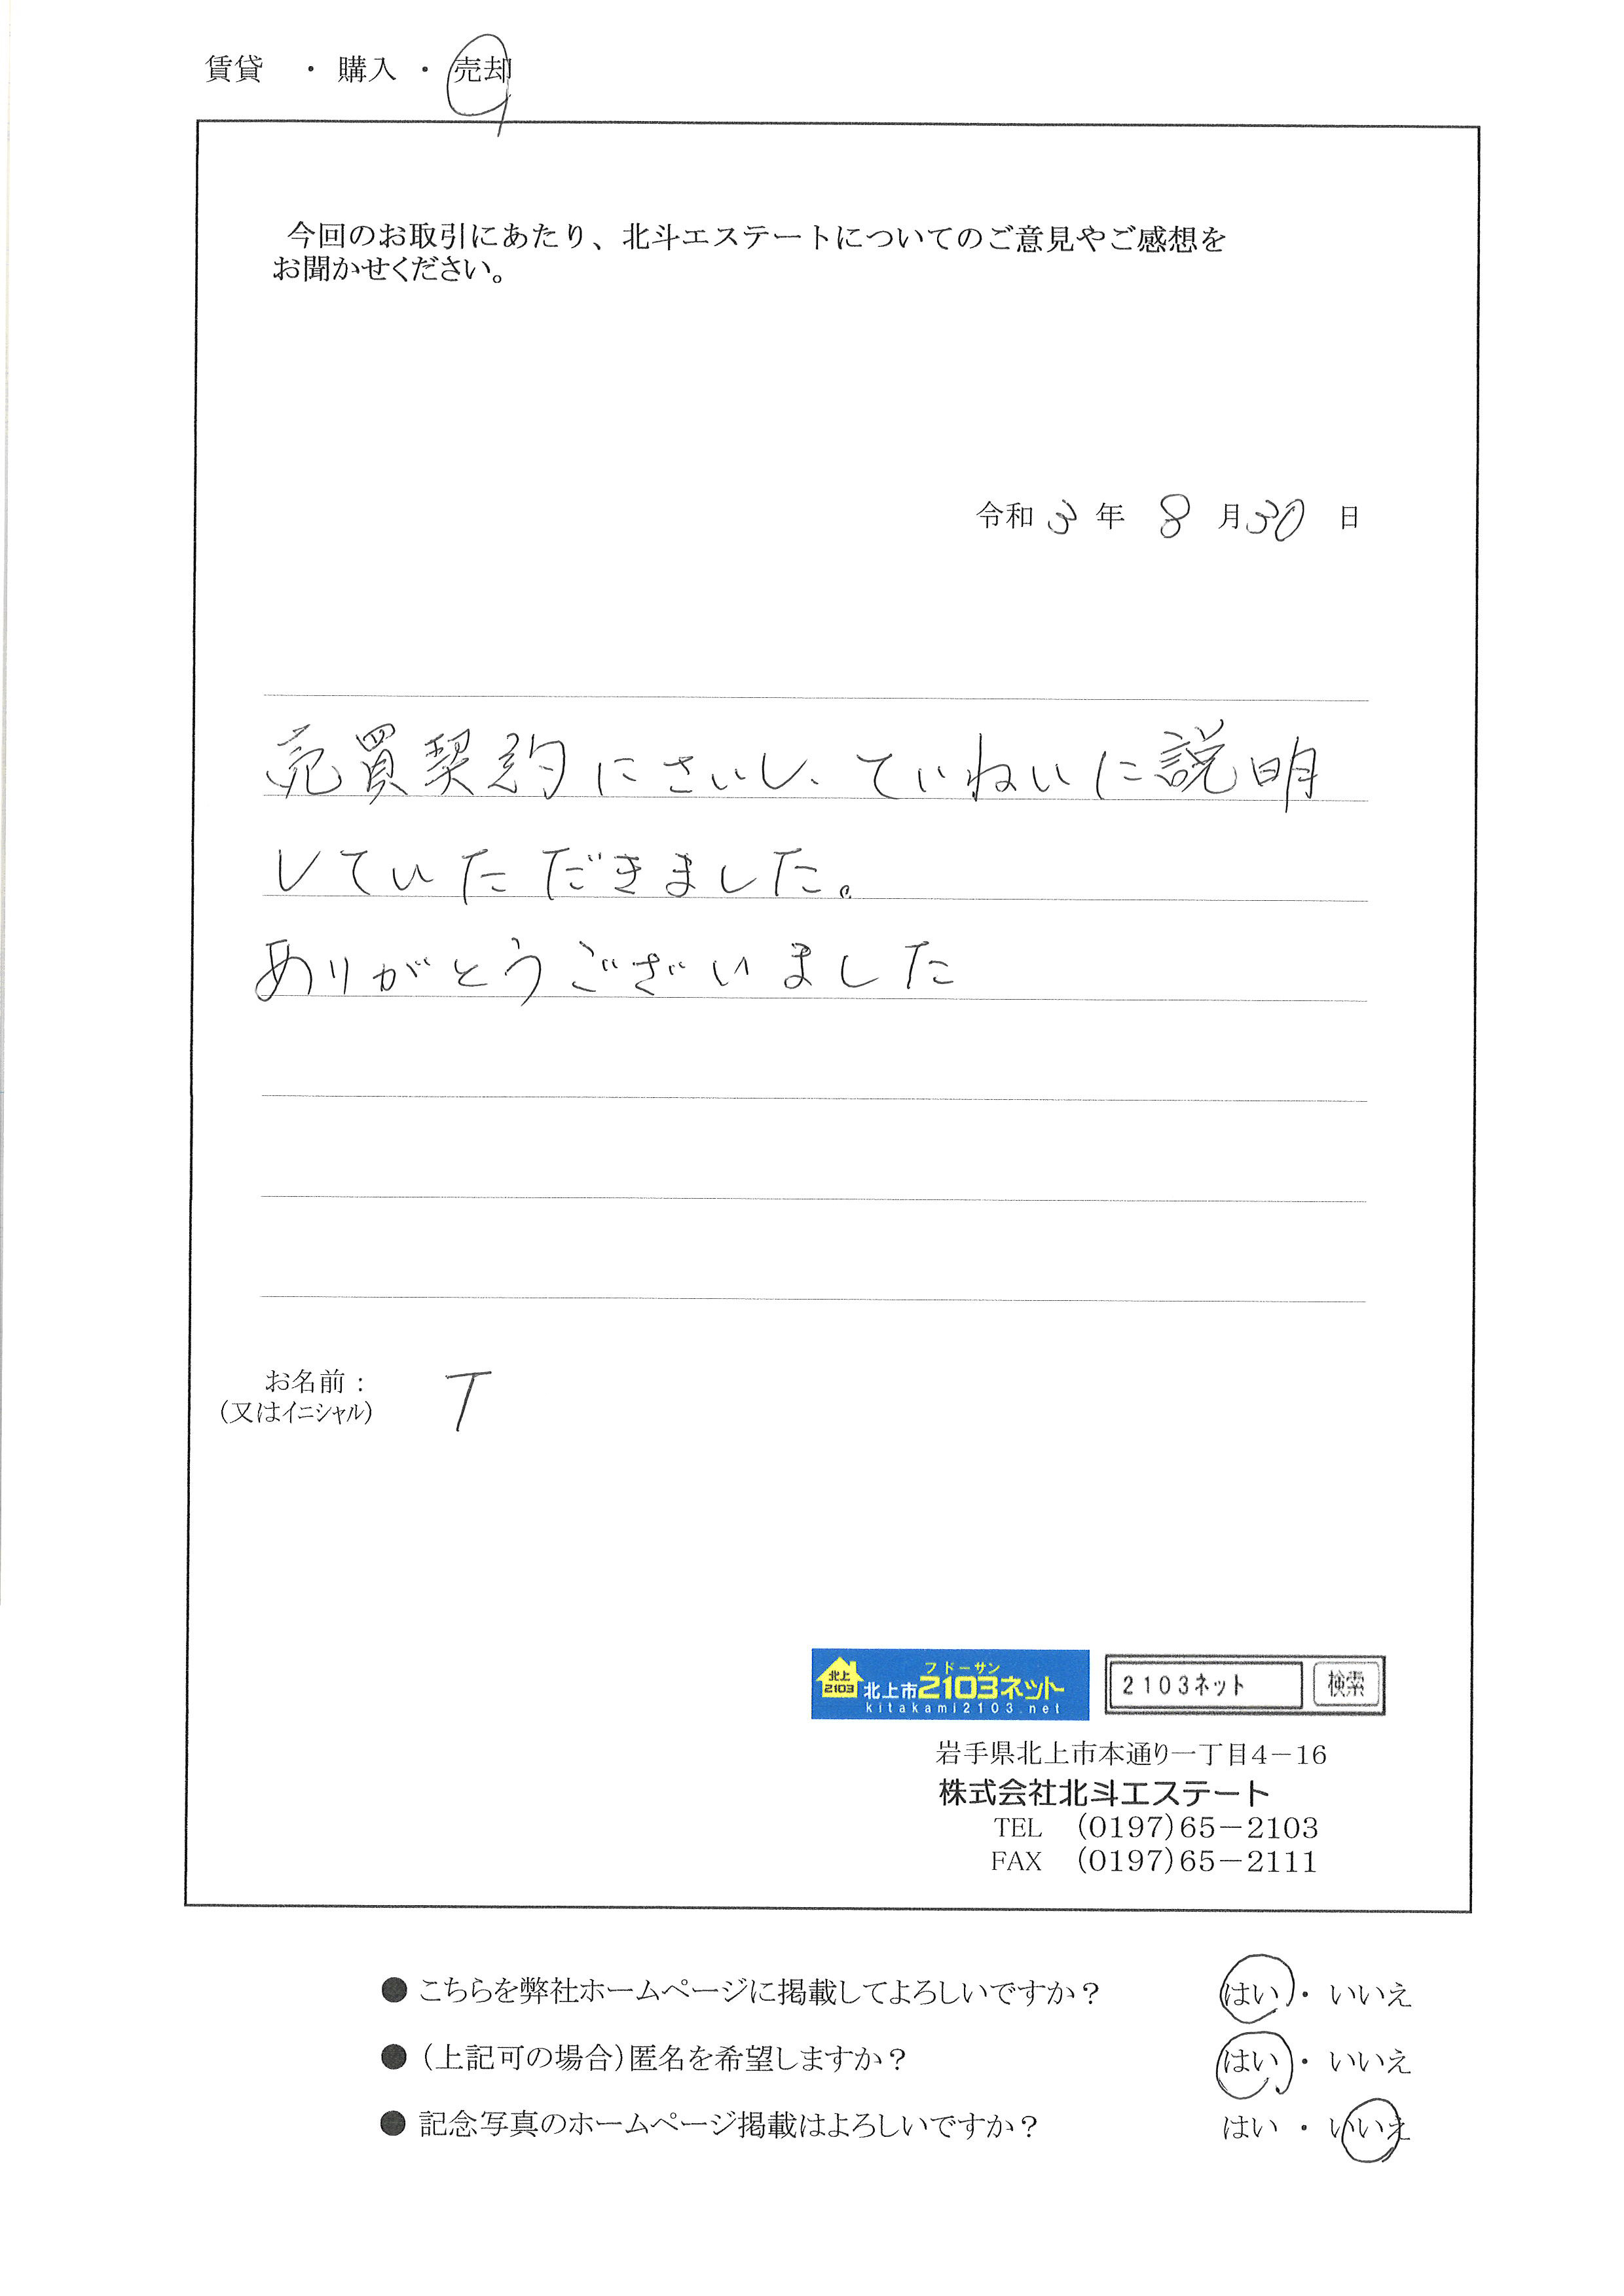 賃貸 ・ 購入 ・ 売却
今回のお取引にあたり、北斗エステートについてのご意見やご感想を
お聞かせください。
令和 3 年 8 月 30 日
売買契約にさいし、ていねいに説明
していただきました。
ありがとうございました
お名前： T
（又はイニシャル）
フドーサン
北上
2103
北上市2103ネット
kitakami2103.net
2103ネット 検索
岩手県北上市本通り一丁目4－16
株式会社北斗エステート
TEL （0197）65－2103
FAX （0197）65－2111
● こちらを弊社ホームページに掲載してよろしいですか？ はい ・ いいえ
● （上記可の場合）匿名を希望しますか？ はい ・ いいえ
● 記念写真のホームページ掲載はよろしいですか？ はい ・ いいえ